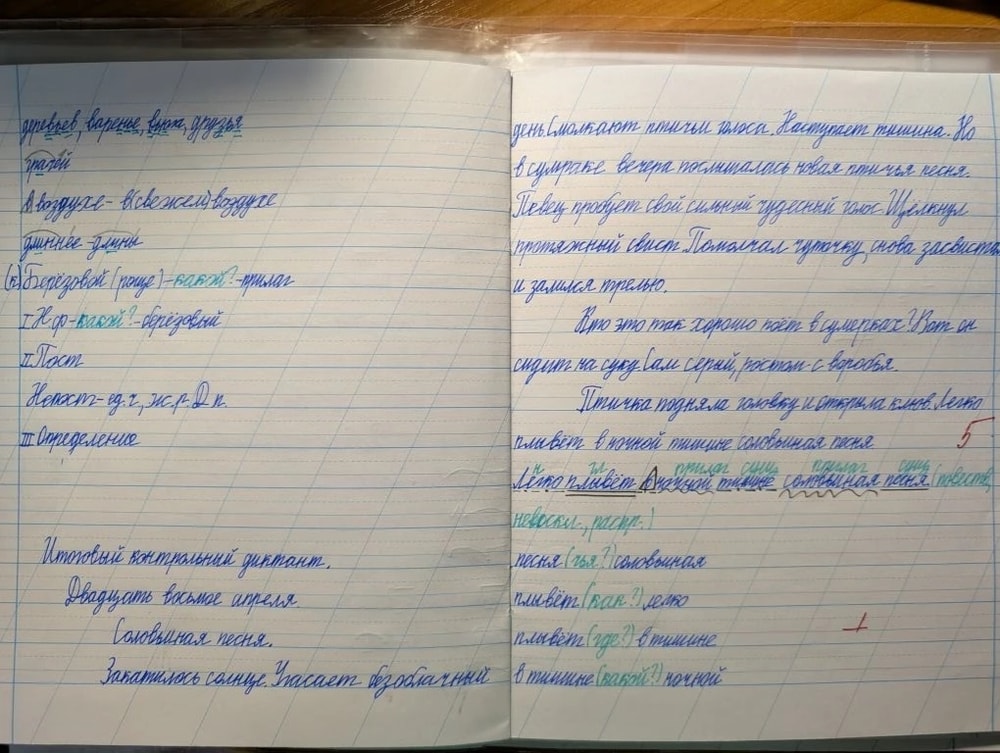 деревьев, варенье, вьюга, друзья
грачей
В воздухе - в (свежем) воздухе
длиннее - длины
(к) Берёзовой (роще) - какой? - прилаг
I Н.ф - какой? - берёзовый
II Пост
Непост - ед.ч, ж.р. Д.п.
III Определение
Итоговый контрольный диктант.
Двадцать восьмое апреля.
Соловьиная песня.
Закатилось солнце. Угасает безоблачный
день. Смолкают птичьи голоса. Наступает тишина. Но
в сумраке вечера послышалась новая птичья песня.
Певец пробует свой сильный чудесный голос. Щёлкнул
протяжный свист. Помолчал чуточку, снова засвистел
и залился трелью.
Кто это так хорошо поёт в сумерках? Вот он
сидит на суку. Сам серый, ростом - с воробья.
Птичка подняла головку и открыла клюв. Легко
плывёт в ночной тишине соловьиная песня
5
н гл прилаг сущ прилаг сущ
Легко плывёт в ночной тишине соловьиная песня (повеств,
невоскл., распр.)
песня (чья?) соловьиная
плывёт (как?) легко
плывёт (где?) в тишине
в тишине (какой?) ночной